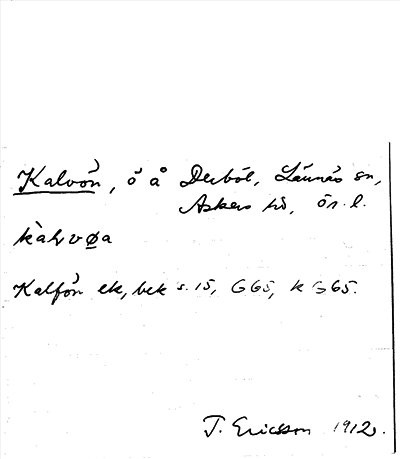 Kalvön, ö å Derbol, Lännäs sn,
Askers hd, Ör. l.
kàlvøa
Kalfön ek, bek s. 15, G65, k G65.
T. Ericsson 1912.